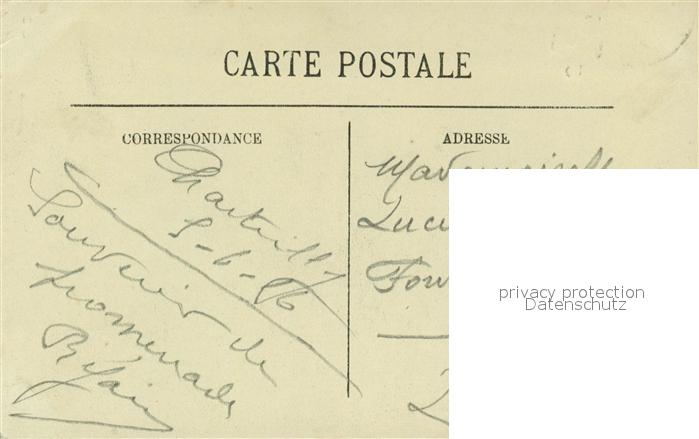 CARTE POSTALE
CORRESPONDANCE
ADRESSE
Chantilly
5-6-06
Souvenir de
promenade
Mademoisell
Luci
privacy protection
Datenschutz